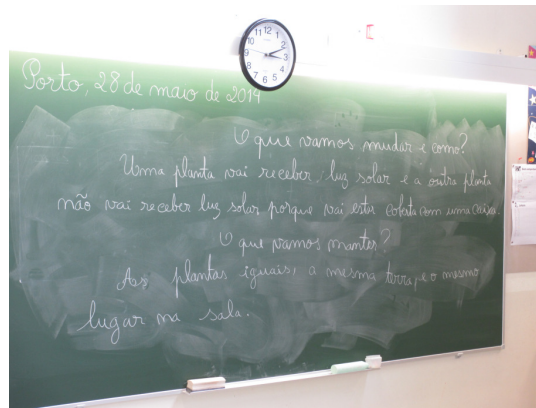 Porto, 28 de maio de 2014
O que vamos mudar e como?
Uma planta vai receber luz solar e a outra planta
não vai receber luz solar porque vai estar coberta com uma caixa.
O que vamos manter?
As plantas iguais, a mesma terra, e o mesmo
lugar na sala.
12
1
2
3
4
5
6
7
8
9
10
11